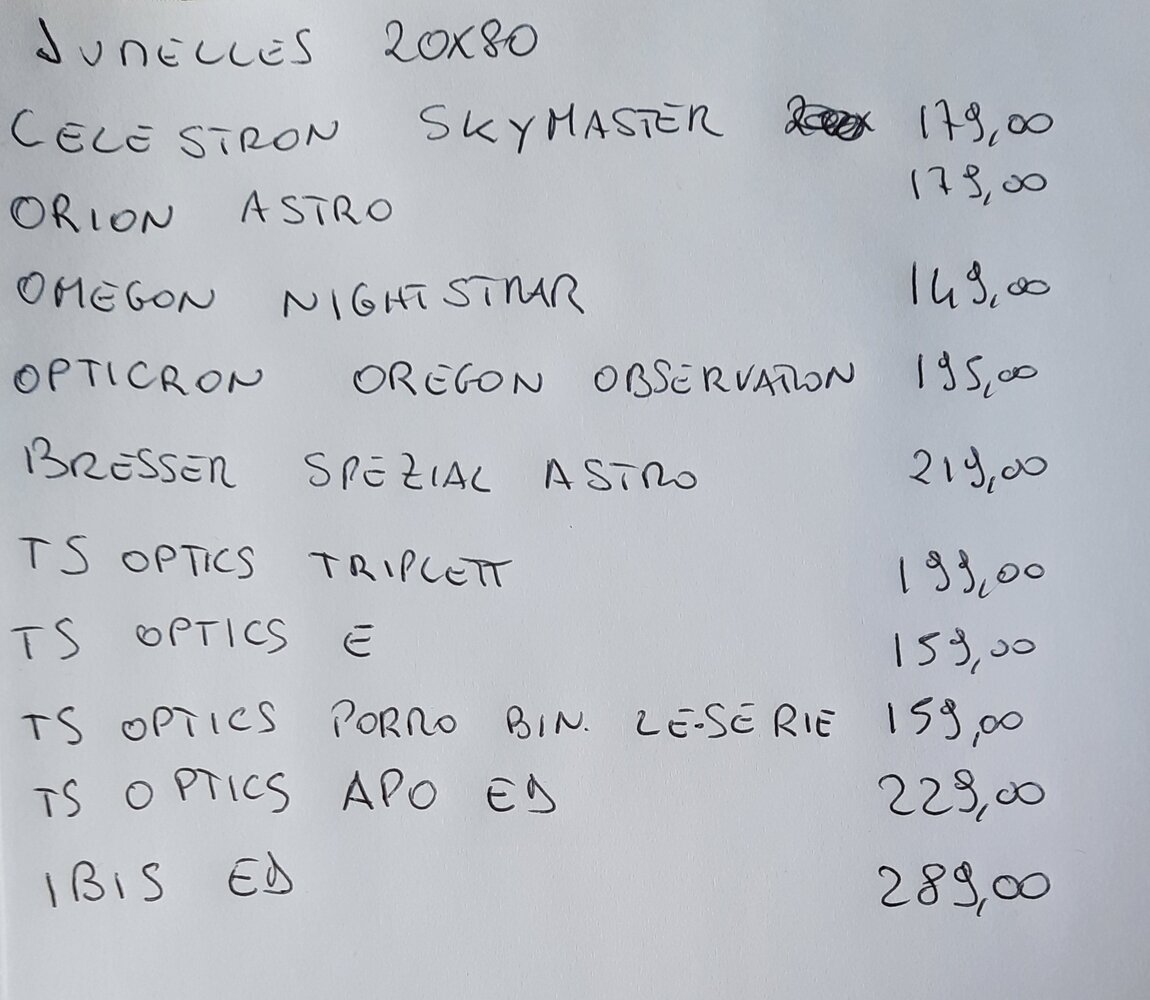 JUMELLES 20X80
CELESTRON SKYMASTER 179,00
ORION ASTRO 179,00
OMEGON NIGHTSTAR 149,00
OPTICRON OREGON OBSERVATION 195,00
BRESSER SPEZIAL ASTRO 219,00
TS OPTICS TRIPLETT 199,00
TS OPTICS E 159,00
TS OPTICS PORRO BIN. LE-SERIE 159,00
TS OPTICS APO ED 229,00
IBIS ED 289,00